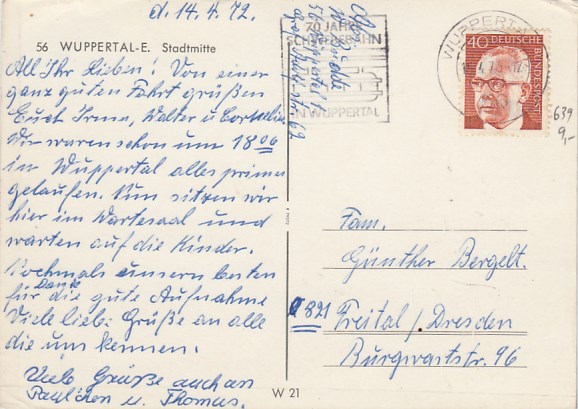 d. 14.4.72.
56 WUPPERTAL-E. Stadtmitte
All Ihr Lieben! Von einer
ganz guten Fahrt grüßen
Euch Irma, Walter u Cornelia.
Wir waren schon um 18 06
in Wuppertal alles prima
gelaufen. Nun sitzen wir
hier im Wartesaal und
warten auf die Kinder.
Nochmals unsern besten
Dank
für die gute Aufnahme
Viele liebe Grüße an alle
die uns kennen.
Viele Grüße auch an
Paulchen u. Thomas.
56 Wuppertal 1
70 JAHRE
SCHWEBEBAHN
IN WUPPERTAL
WUPPERTAL
40
DEUTSCHE
BUNDESPOST
639
9,-
Fam.
Günther Bergelt.
821
Freital / Dresden
Burgwartstr. 96
W 21